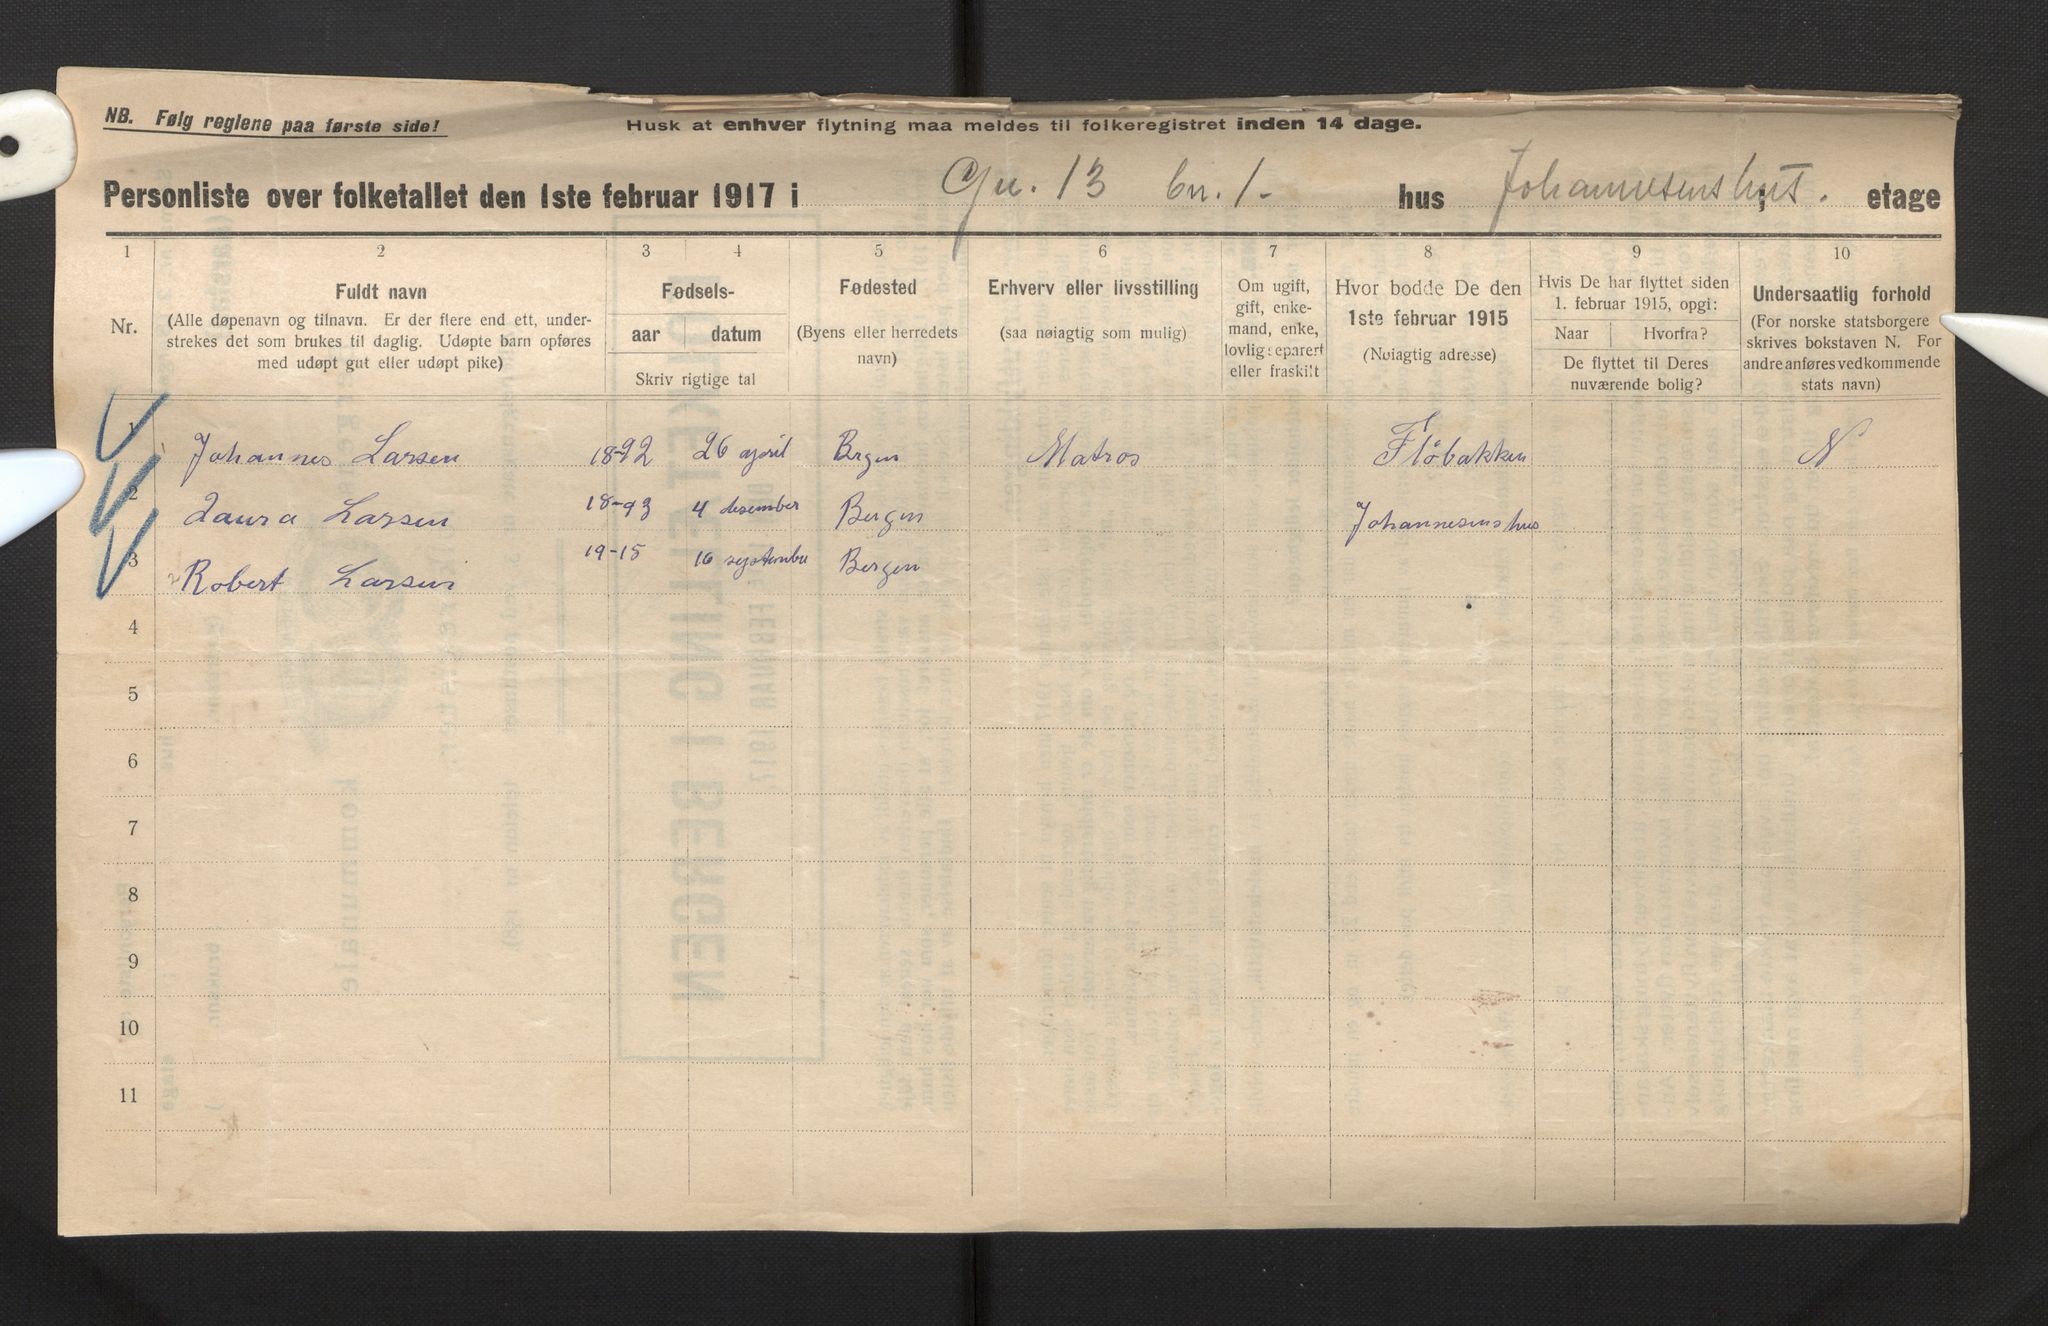 NB. Følg reglene paa første side!
Husk at enhver flytning maa meldes til folkeregistret inden 14 dage.
Personliste over folketallet den 1ste februar 1917 i Gn. 13 bn. 1. hus Johannesenshus. ; etage
1 2 3 4 5 6 7 8 9 10
Nr.
Fuldt navn
(Alle døpenavn og tilnavn. Er der flere end ett, under-
strekes det som brukes til daglig. Udøpte barn opføres
med udøpt gut eller udøpt pike)
Fødsels-
aar datum
Skriv rigtige tal
Fødested
(Byens eller herredets
navn)
Erhverv eller livsstilling
(saa nøiagtig som mulig)
Om ugift,
gift, enke-
mand, enke,
lovlig separert
eller fraskilt
Hvor bodde De den
1ste februar 1915
(Nøiagtig adresse)
Hvis De har flyttet siden
1. februar 1915, opgi:
Naar Hvorfra?
De flyttet til Deres
nuværende bolig?
Undersaatlig forhold
(For norske statsborgere
skrives bokstaven N. For
andre anføres vedkommende
stats navn)
1 Johannes Larsen 18-92 26 april Bergen Matros Fløbakken N
2 Laura Larsen 18-93 4 desember Bergen Johannesenshus
3 Robert Larsen 19-15 16 september Bergen
4
5
6
7
8
9
10
11